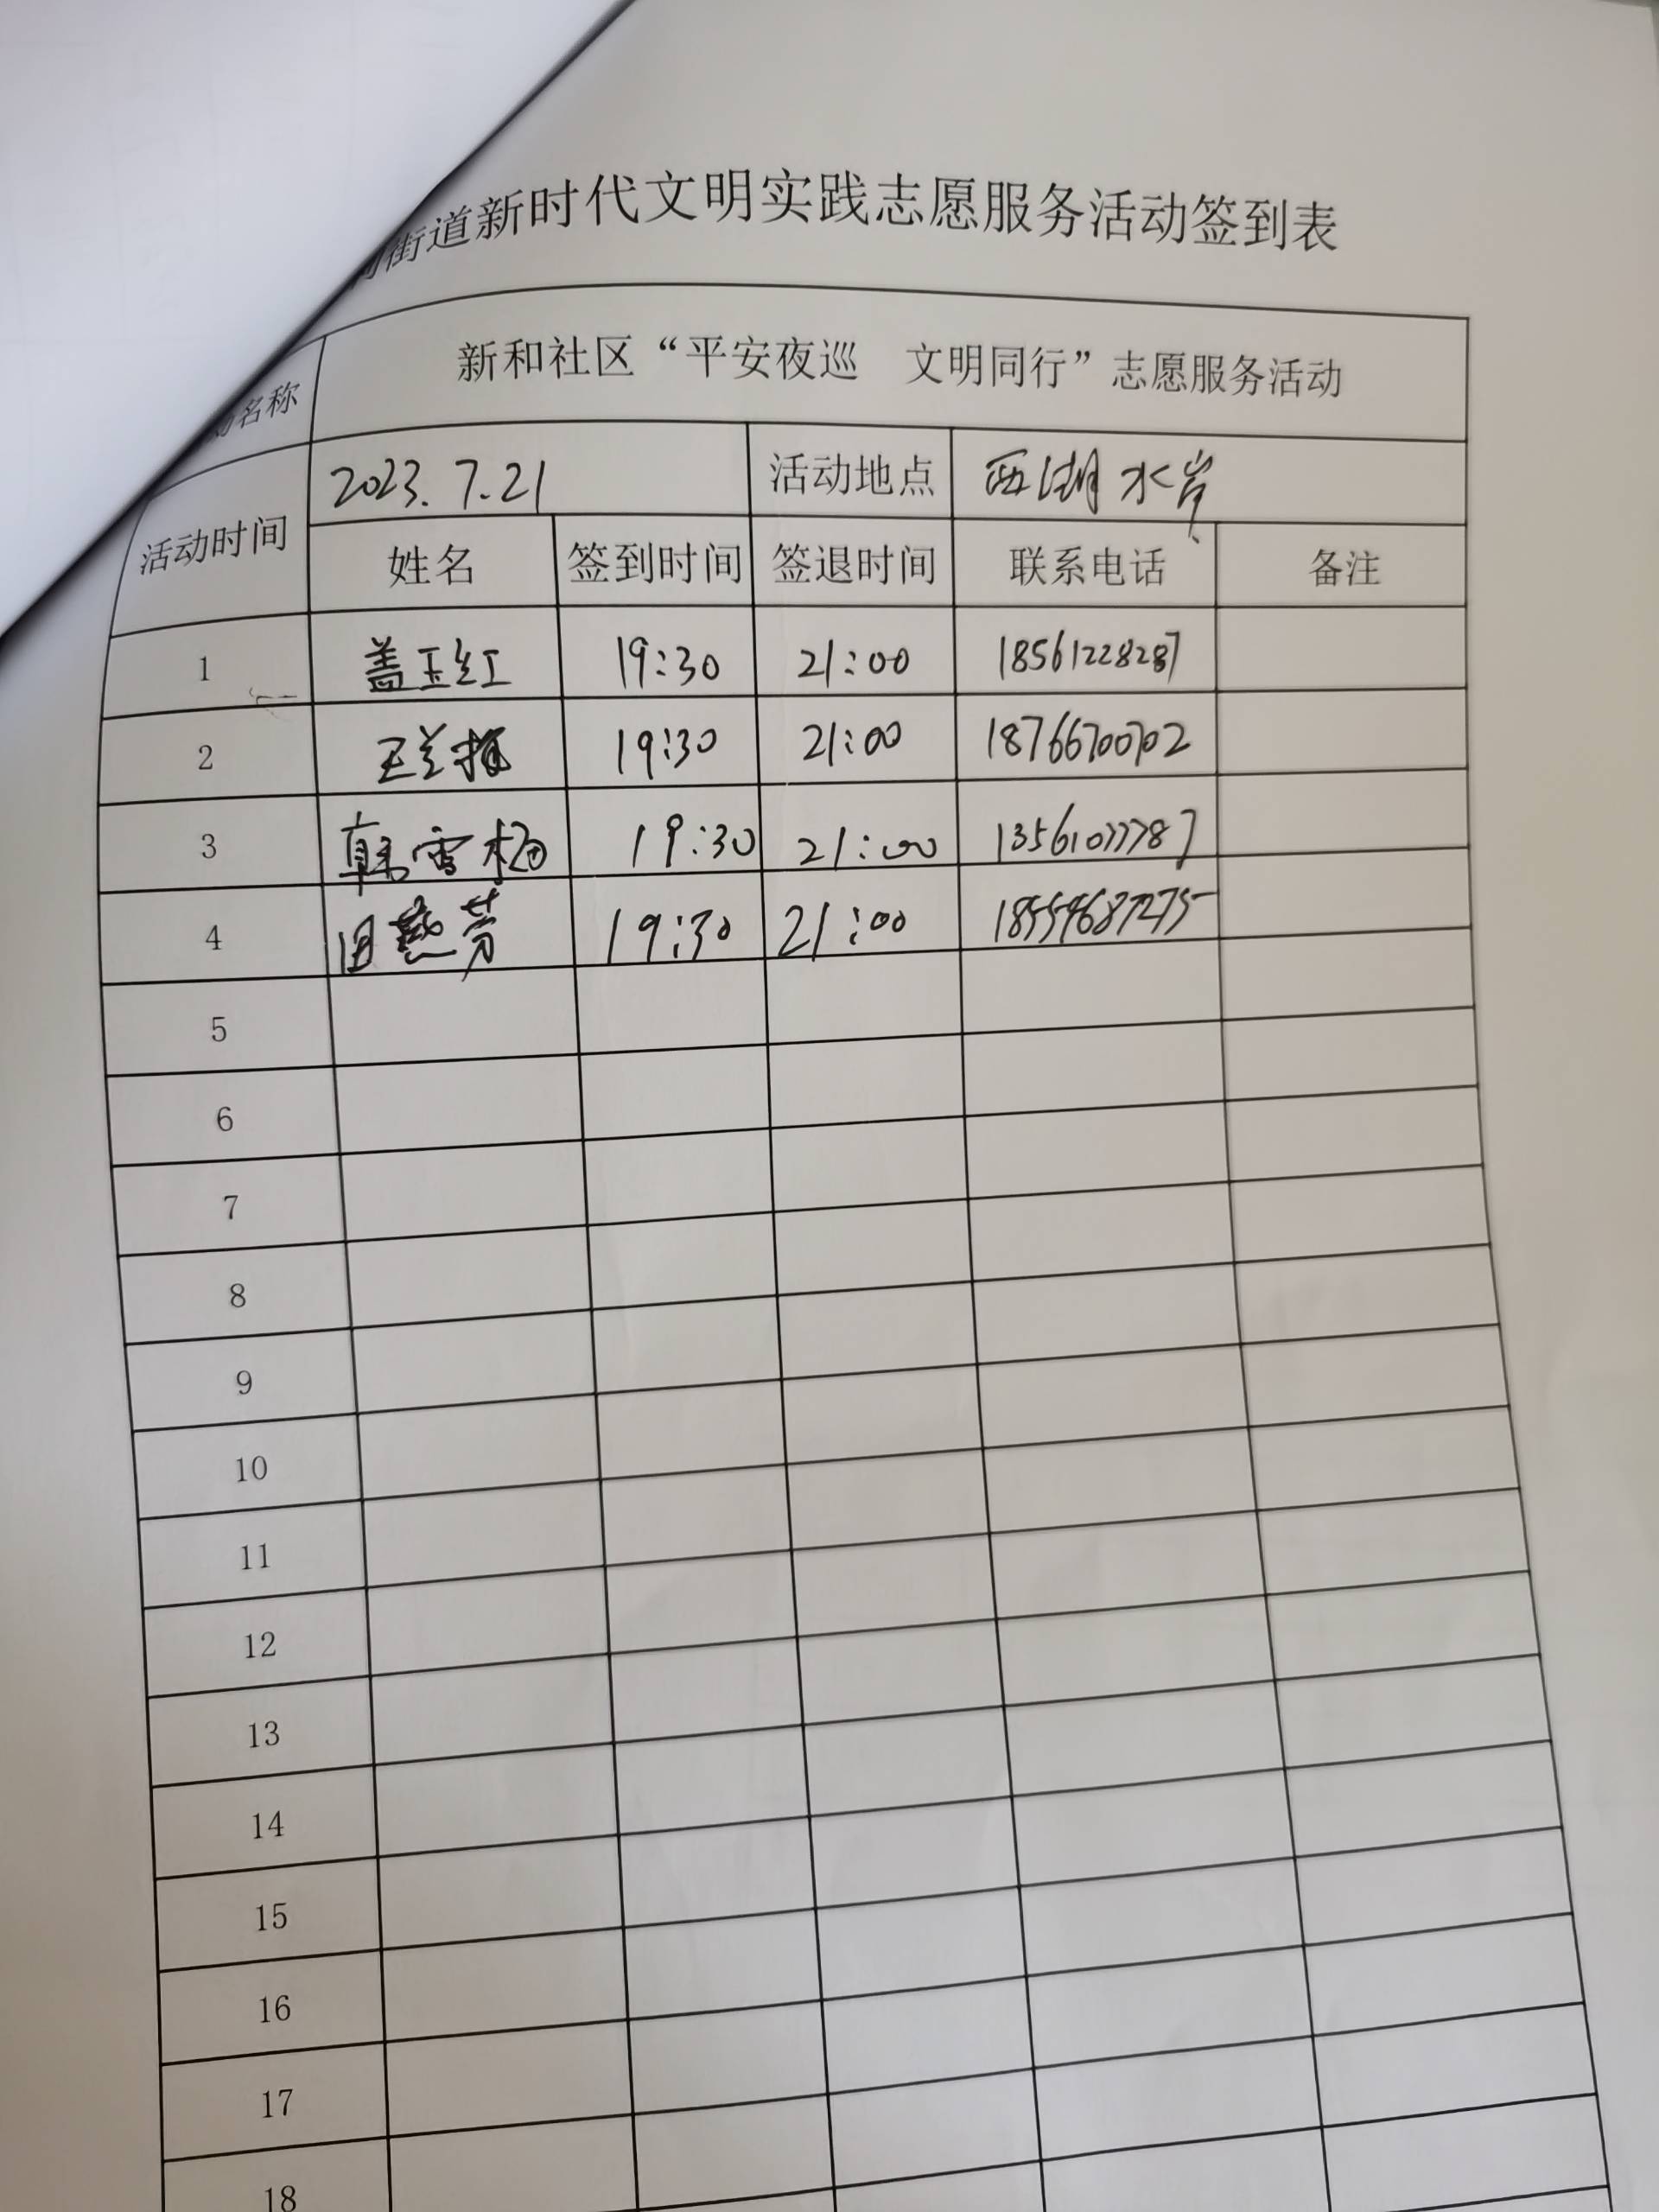 街道新时代文明实践志愿服务活动签到表
名称 新和社区“平安夜巡 文明同行”志愿服务活动
活动时间 2023.7.21 活动地点 西湖水岸
姓名 签到时间 签退时间 联系电话 备注
1 盖玉红 19:30 21:00 18561228287
2 王兰 19:30 21:00 18766700702
3 韩雪梅 19:30 21:00 13561077787
4 芳 19:30 21:00
5
6
7
8
9
10
11
12
13
14
15
16
17
18